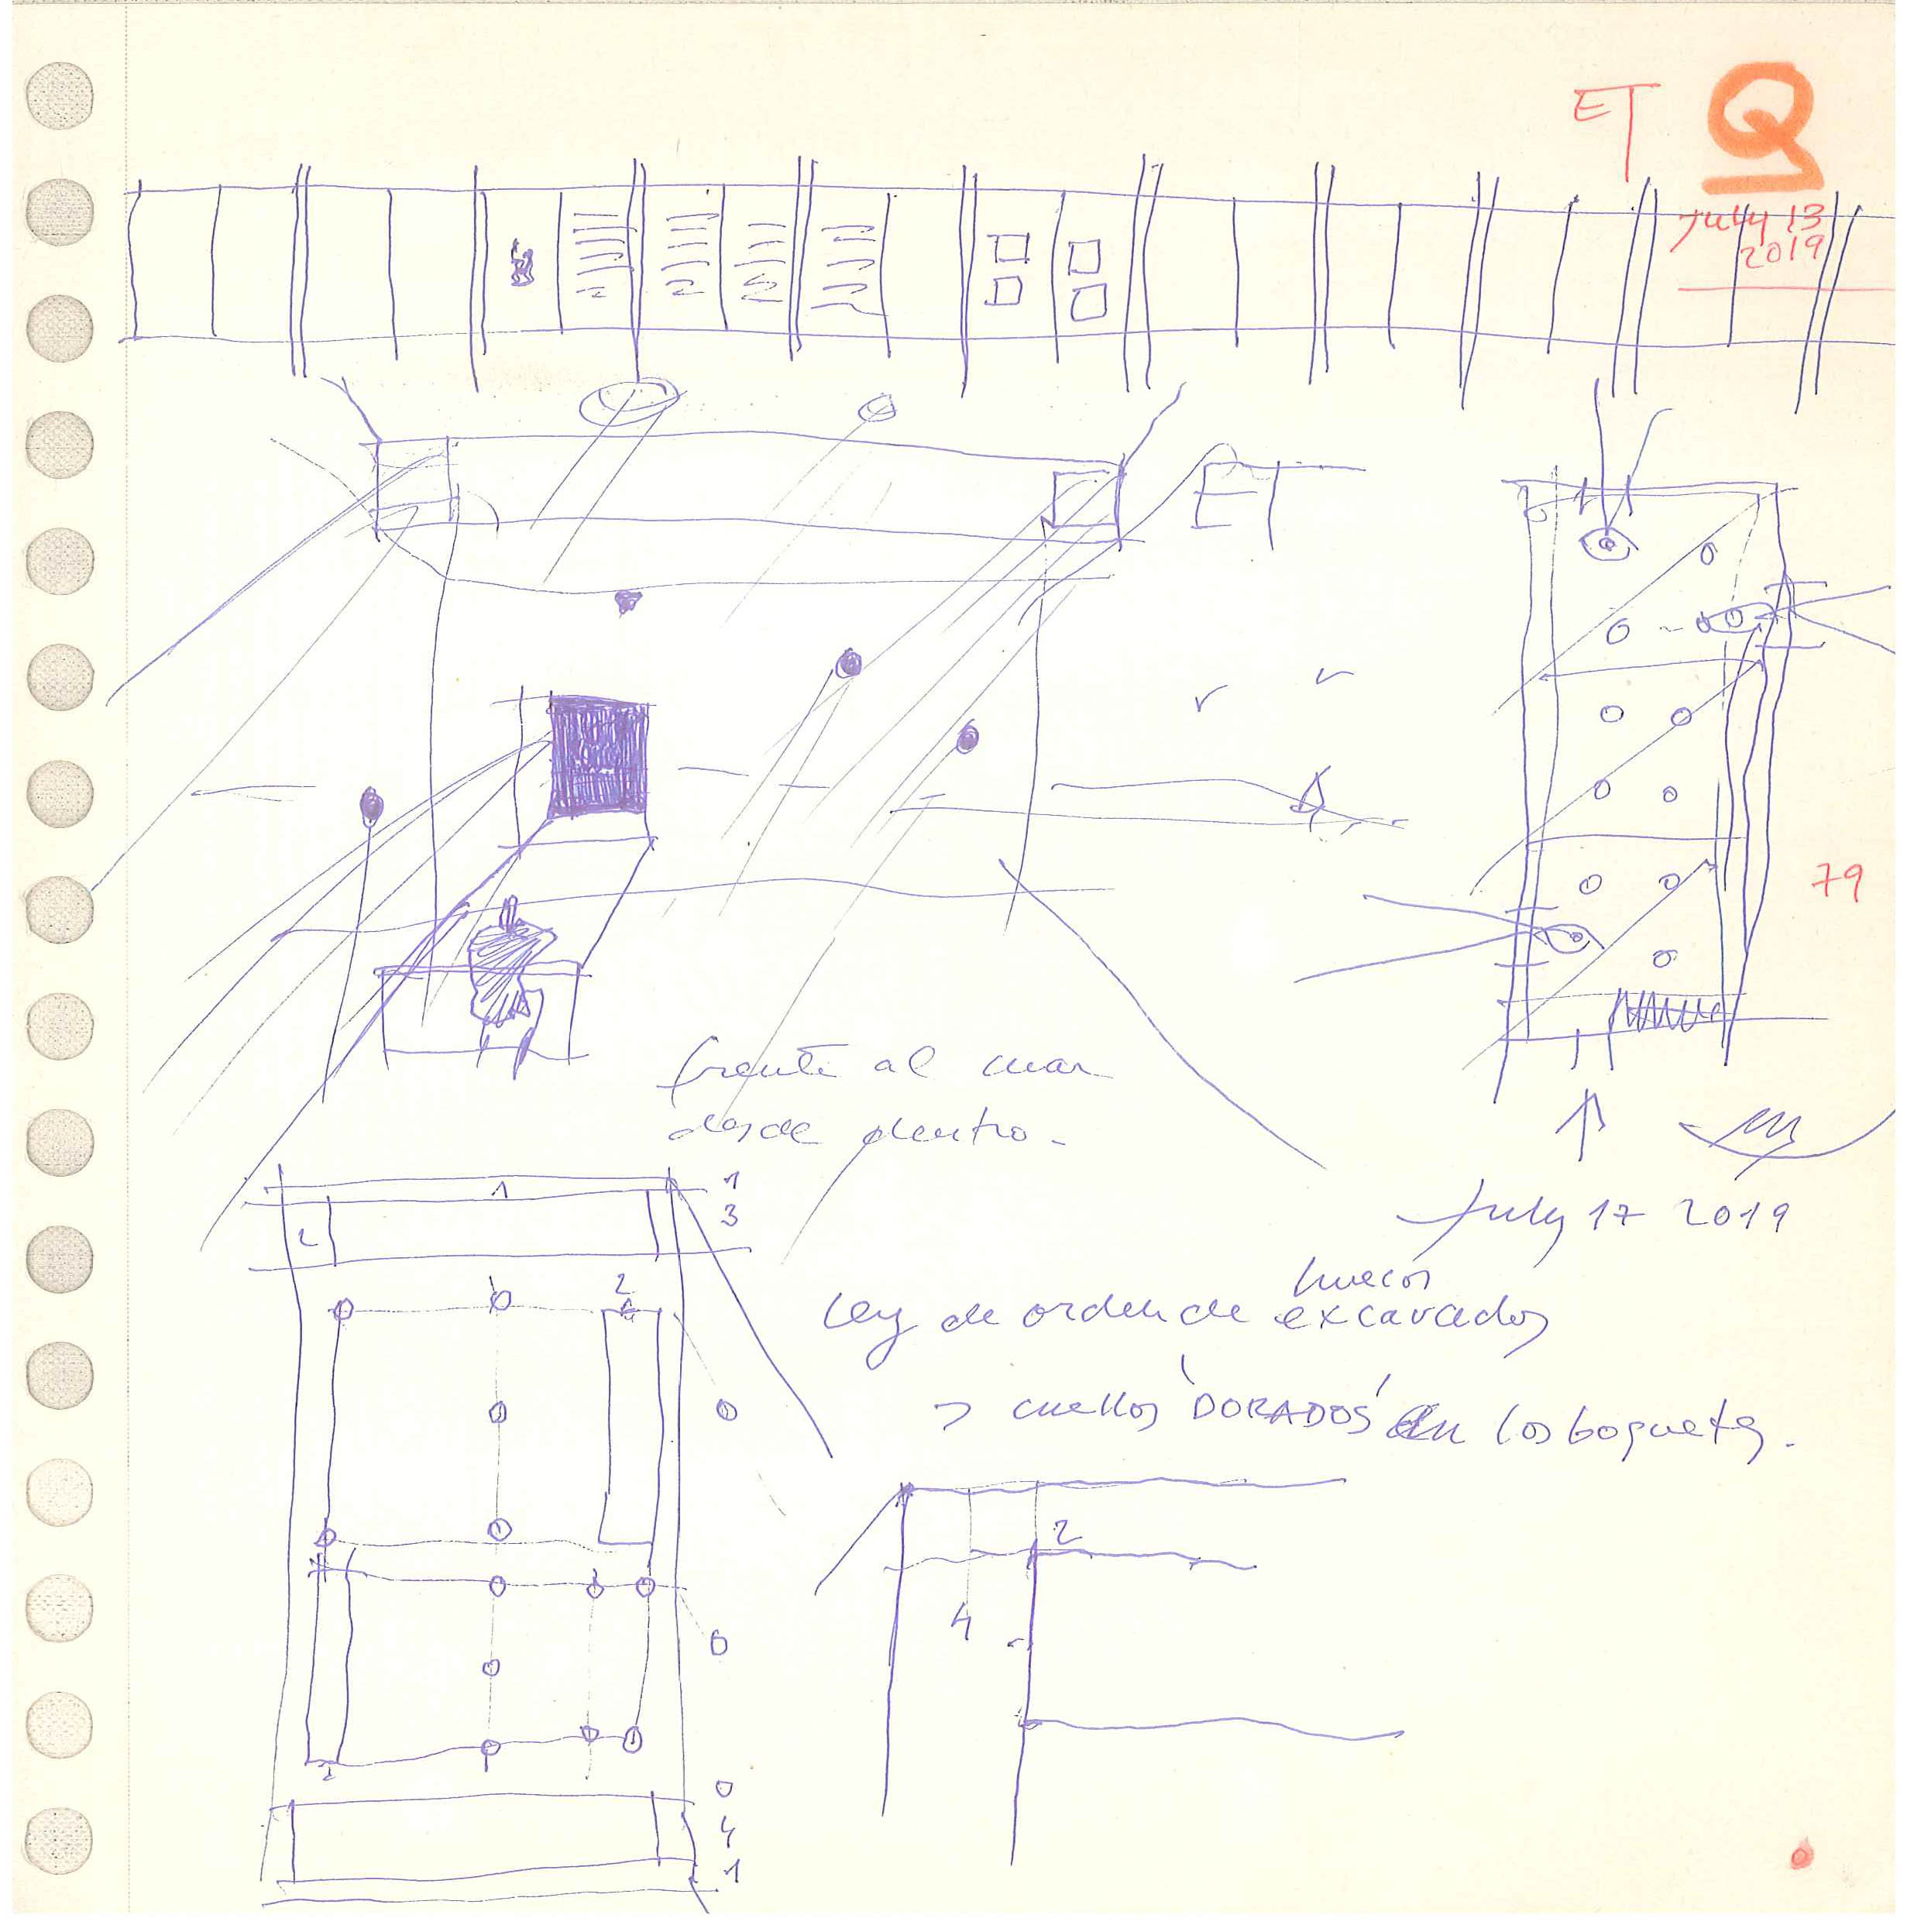 ET Q
July 13
2019
ET
79
frente al mar
desde dentro.
1
1
3
2
July 17 2019
huecos
Ley de orden de excavados
2
→ cuellos 'DORADOS' en los boquetes.
2
4
1
0
4
1